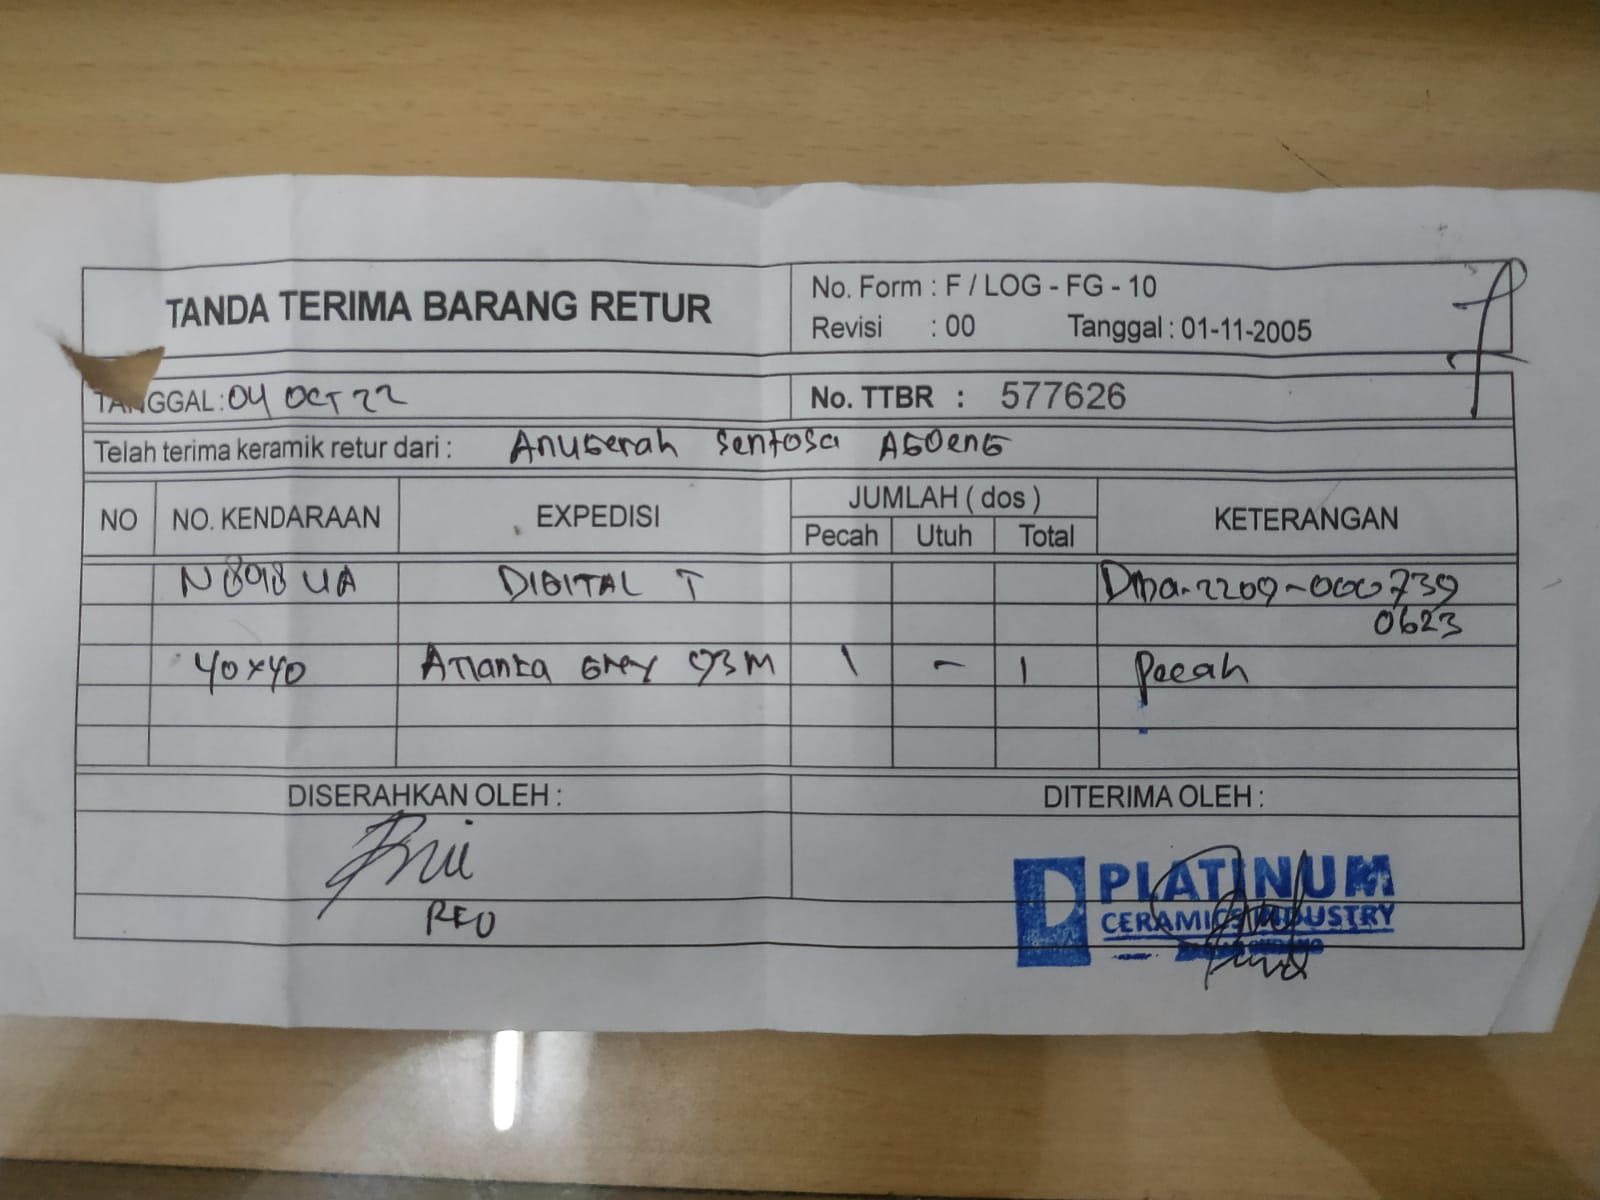 TANDA TERIMA BARANG RETUR
No. Form : F / LOG - FG - 10
Revisi : 00 Tanggal : 01-11-2005
TANGGAL : 04 OCT 22
No. TTBR : 577626
Telah terima keramik retur dari : Anugerah Sentosa AGOENG
NO NO. KENDARAAN EXPEDISI JUMLAH ( dos ) KETERANGAN
Pecah Utuh Total
N 8098 UA DIGITAL T
0623
40x40 Atlanta Grey 1 - 1 Pecah
DISERAHKAN OLEH : DITERIMA OLEH :
PLATINUM
CERAMICS INDUSTRY